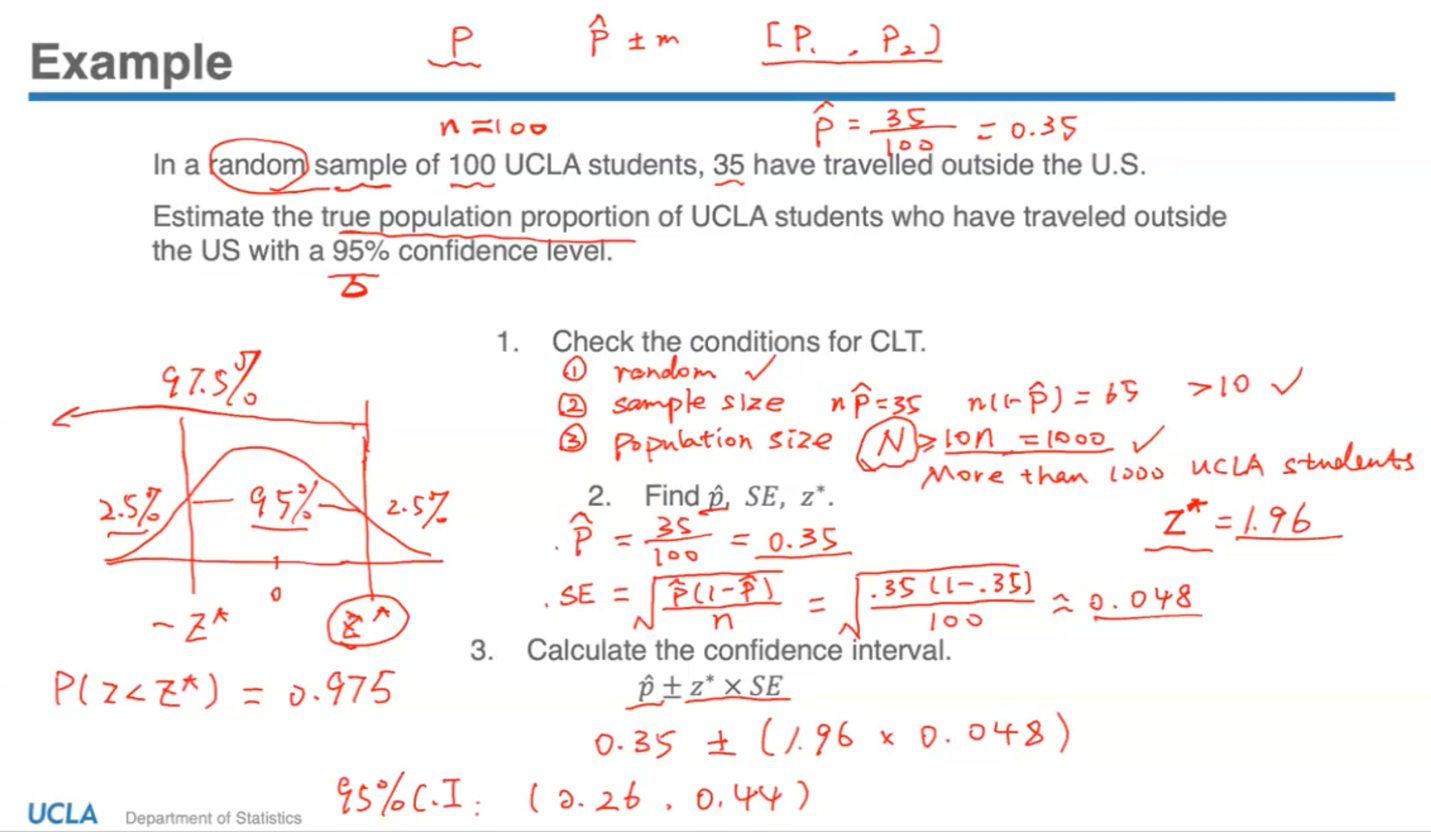 P p̂ ± m [P₁ , P₂]
Example
n = 100 p̂ = 35/100 = 0.35
In a random sample of 100 UCLA students, 35 have travelled outside the U.S.
Estimate the true population proportion of UCLA students who have traveled outside
the US with a 95% confidence level.
1. Check the conditions for CLT.
① random ✓
② sample size n p̂ = 35 n(1-p̂) = 65 >10 ✓
③ population size N ≥ 10n = 1000 ✓
More than 1000 UCLA students
2. Find p̂, SE, z*.
p̂ = 35/100 = 0.35
z* = 1.96
SE = √(p̂(1-p̂)/n) = √(.35(1-.35)/100) ≈ 0.048
3. Calculate the confidence interval.
p̂ ± z* × SE
0.35 ± (1.96 × 0.048)
95% C.I: (0.26, 0.44)
97.5%
2.5% 95% 2.5%
0
-z* z*
P(z<z*) = 0.975
UCLA Department of Statistics